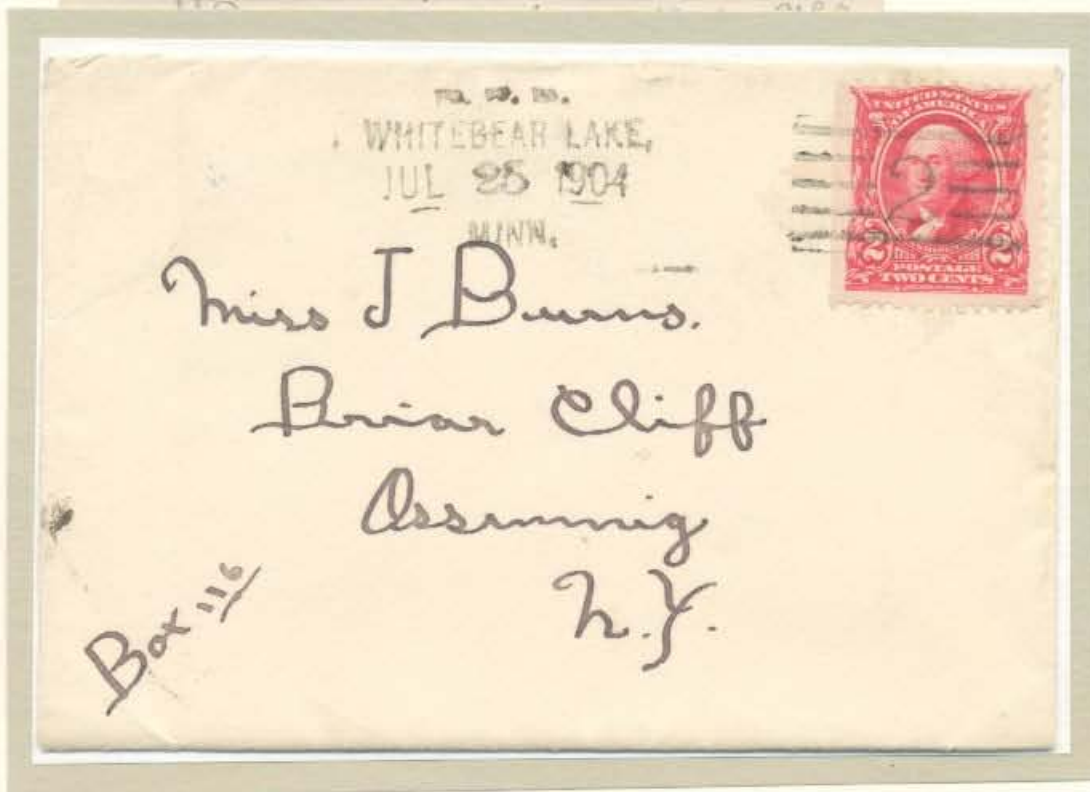 WHITEBEAR LAKE,
JUL 25 1904
MINN.
UNITED STATES
OF AMERICA
2
2 2
POSTAGE
TWO CENTS
Miss J Burns.
Briar Cliff
Ossinnig
N.Y.
Box 116